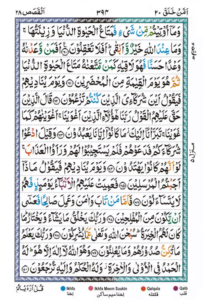 اَمَّنْ خَلَقَ ٢٠
٣٩٣
اَلْقَصَص ٢٨
وَمَآ اُوْتِيْتُمْ مِّنْ شَيْءٍ فَمَتَاعُ الْحَيٰوةِ الدُّنْيَا وَزِيْنَتُهَا ۚ
وَمَا عِنْدَ اللّٰهِ خَيْرٌ وَّاَبْقٰى ؕ اَفَلَا تَعْقِلُوْنَ ۞ اَفَمَنْ وَّعَدْنٰهُ
وَعْدًا حَسَنًا فَهُوَ لَاقِيْهِ كَمَنْ مَّتَّعْنٰهُ مَتَاعَ الْحَيٰوةِ الدُّنْيَا
ثُمَّ هُوَ يَوْمَ الْقِيٰمَةِ مِنَ الْمُحْضَرِيْنَ ۞ وَيَوْمَ يُنَادِيْهِمْ
فَيَقُوْلُ اَيْنَ شُرَكَآءِيَ الَّذِيْنَ كُنْتُمْ تَزْعُمُوْنَ ۞ قَالَ الَّذِيْنَ
حَقَّ عَلَيْهِمُ الْقَوْلُ رَبَّنَا هٰٓؤُلَآءِ الَّذِيْنَ اَغْوَيْنَا ۚ اَغْوَيْنٰهُمْ كَمَا
غَوَيْنَا ۚ تَبَرَّاْنَآ اِلَيْكَ ۫ مَا كَانُوْٓا اِيَّانَا يَعْبُدُوْنَ ۞ وَقِيْلَ ادْعُوْا
شُرَكَآءَكُمْ فَدَعَوْهُمْ فَلَمْ يَسْتَجِيْبُوْا لَهُمْ وَرَاَوُا الْعَذَابَ ۚ
لَوْ اَنَّهُمْ كَانُوْا يَهْتَدُوْنَ ۞ وَيَوْمَ يُنَادِيْهِمْ فَيَقُوْلُ مَاذَآ
اَجَبْتُمُ الْمُرْسَلِيْنَ ۞ فَعَمِيَتْ عَلَيْهِمُ الْاَنْۢبَآءُ يَوْمَئِذٍ فَهُمْ
لَا يَتَسَآءَلُوْنَ ۞ فَاَمَّا مَنْ تَابَ وَاٰمَنَ وَعَمِلَ صَالِحًا فَعَسٰٓى
اَنْ يَّكُوْنَ مِنَ الْمُفْلِحِيْنَ ۞ وَرَبُّكَ يَخْلُقُ مَا يَشَآءُ وَيَخْتَارُ ؕ مَا
كَانَ لَهُمُ الْخِيَرَةُ ؕ سُبْحٰنَ اللّٰهِ وَتَعٰلٰى عَمَّا يُشْرِكُوْنَ ۞ وَرَبُّكَ يَعْلَمُ
مَا تُكِنُّ صُدُوْرُهُمْ وَمَا يُعْلِنُوْنَ ۞ وَهُوَ اللّٰهُ لَآ اِلٰهَ اِلَّا هُوَ ؕ لَهُ
الْحَمْدُ فِى الْاُوْلٰى وَالْاٰخِرَةِ ۫ وَلَهُ الْحُكْمُ وَاِلَيْهِ تُرْجَعُوْنَ ۞
Ikhfa
Ikhfa Meem Saakin
Qalqala
Qalb